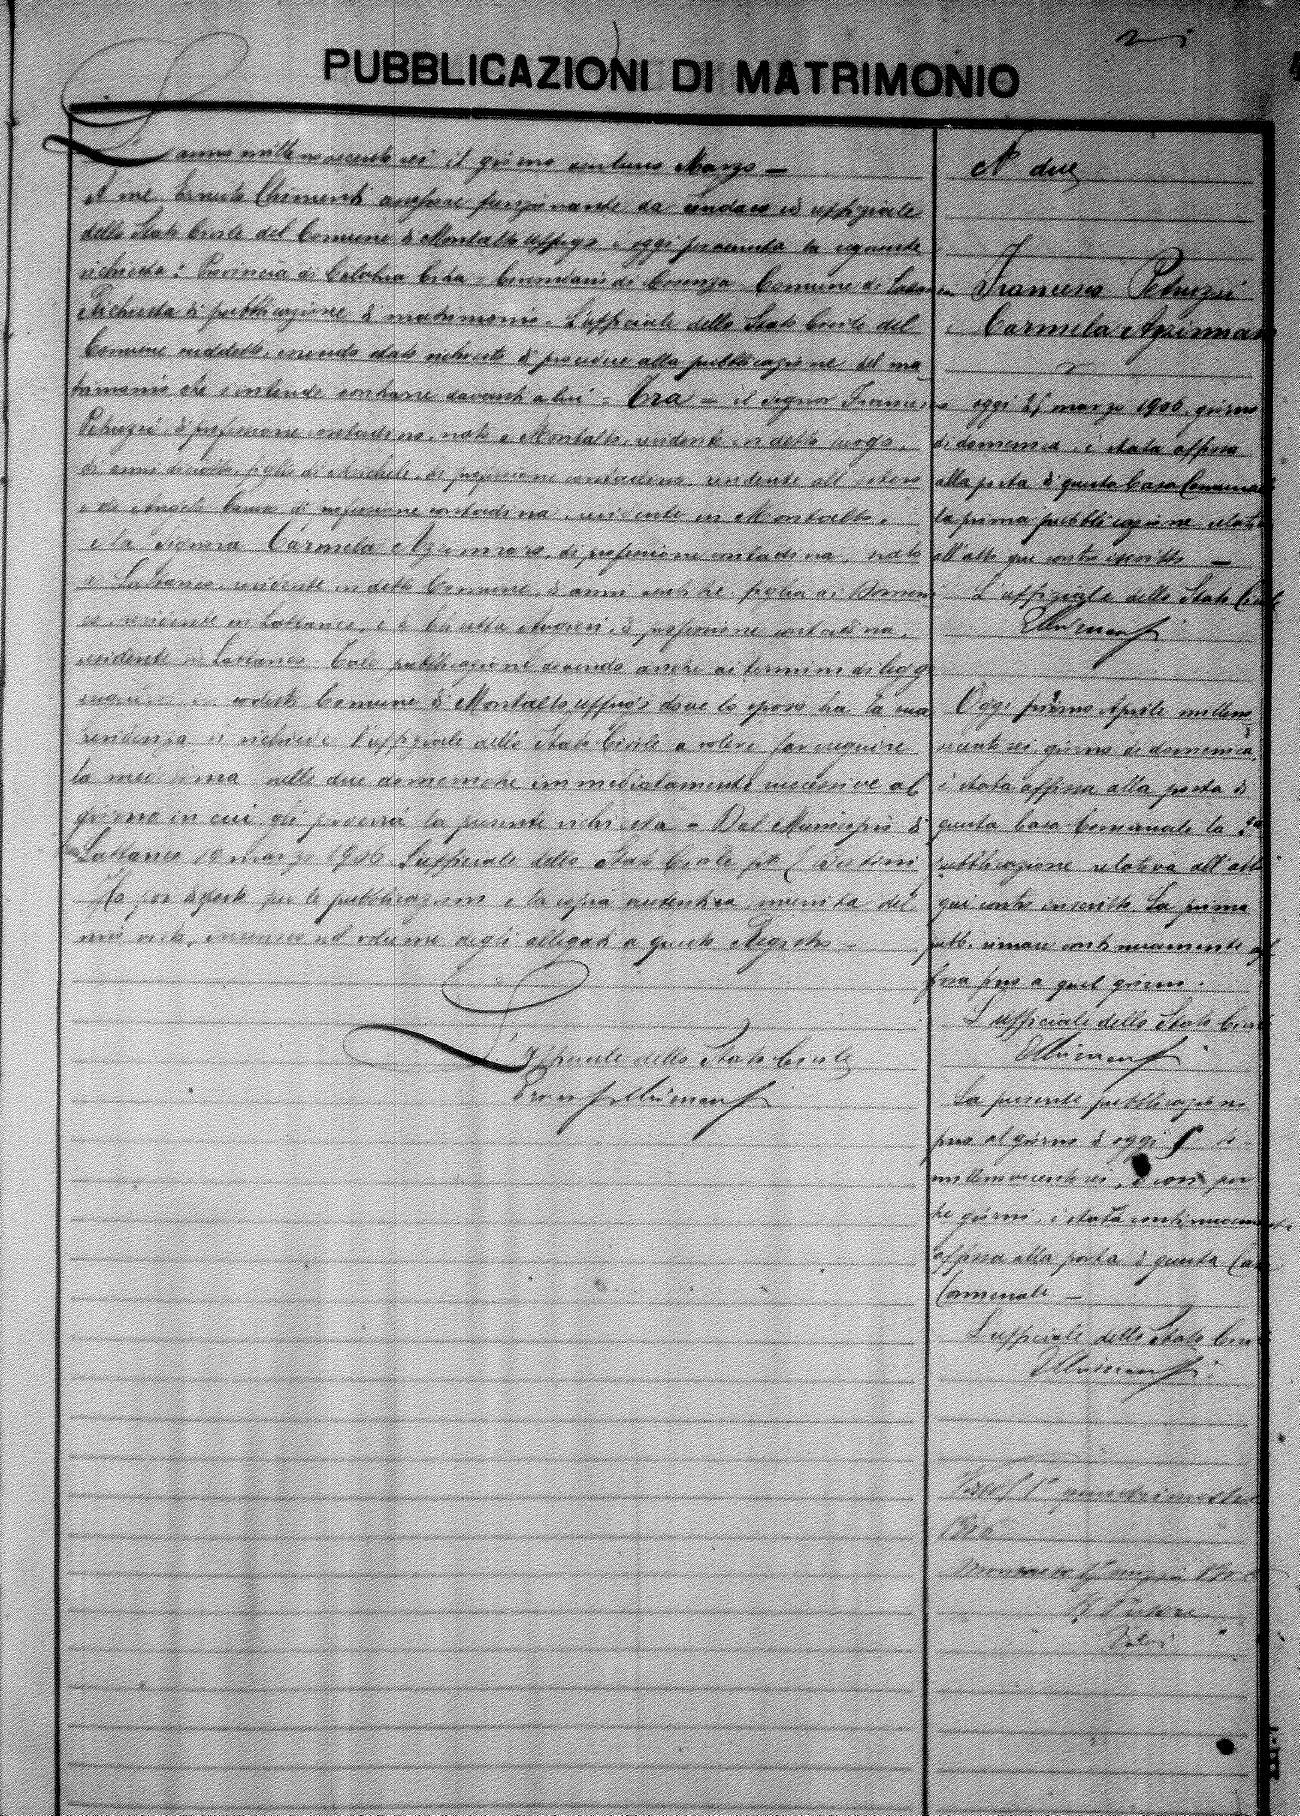 PUBBLICAZIONI DI MATRIMONIO
L'anno millenovecento sei il giorno ventuno Marzo —
A me Ernesto Chimenti assessore funzionante da sindaco ed uffiziale
dello Stato Civile del Comune di Montalto Uffugo è oggi pervenuta la seguente
richiesta: Provincia di Calabria Citra - Circondario di Cosenza Comune di Lattarico
Richiesta di pubblicazione di matrimonio. L'ufficiale dello Stato Civile del
Comune suddetto, essendo stato richiesto di procedere alla pubblicazione del ma-
trimonio che s'intende contrarre davanti a lui = Tra = il signor Francesco
Petruzzi, di professione contadino, nato a Montalto, residente in detto luogo,
di anni diciotto, figlio di Michele, di professione contadino residente all'estero
e di di professione contadina, residente in Montalto,
e la Signora Carmela Azinnaro, di professione contadina, nata
a Lattarico, residente in detto Comune, di anni ventitre, figlia di Domeni-
co, residente in Lattarico, e di professione contadina,
residente in Lattarico. Tale pubblicazione dovendo anche ai termini di legge
seguire in codesto Comune di Montalto Uffugo dove lo sposo ha la sua
residenza si richiede l'uffiziale dello Stato Civile a voler far eseguire
la medesima nelle due domeniche immediatamente successive al
giorno in cui gli perverrà la presente richiesta - Dal Municipio di
Lattarico 19 marzo 1906 L'uffiziale dello Stato Civile
Ho poi disposto per le pubblicazioni e la copia autentica munita del
mio visto, inserisco nel volume degli allegati a questo Registro —
L'Ufficiale dello Stato Civile
Ernesto Chimenti
N° due
Francesco Petruzzi
e Carmela Azinnaro
oggi 25 marzo 1906, giorno
di domenica, è stata affissa
alla porta di questa Casa Comunale
la prima pubblicazione relativa
all'atto qui contro iscritto —
L'uffiziale dello Stato Civile
EChimenti
Oggi primo Aprile milleno-
vecento sei, giorno di domenica,
è stata affissa alla porta di
questa Casa Comunale la 2ª
pubblicazione relativa all'atto
qui contro inscritto. La prima
pubb. rimase continuamente af-
fissa fino a quel giorno.
L'ufficiale dello Stato Civile
EChimenti
La presente pubblicazione
fino al giorno di oggi
millenovecento sei, e così per
tre giorni, è stata continuamente
affissa alla porta di questa Casa
Comunale —
L'ufficiale dello Stato Civile
EChimenti
1° quadrimestre
1906